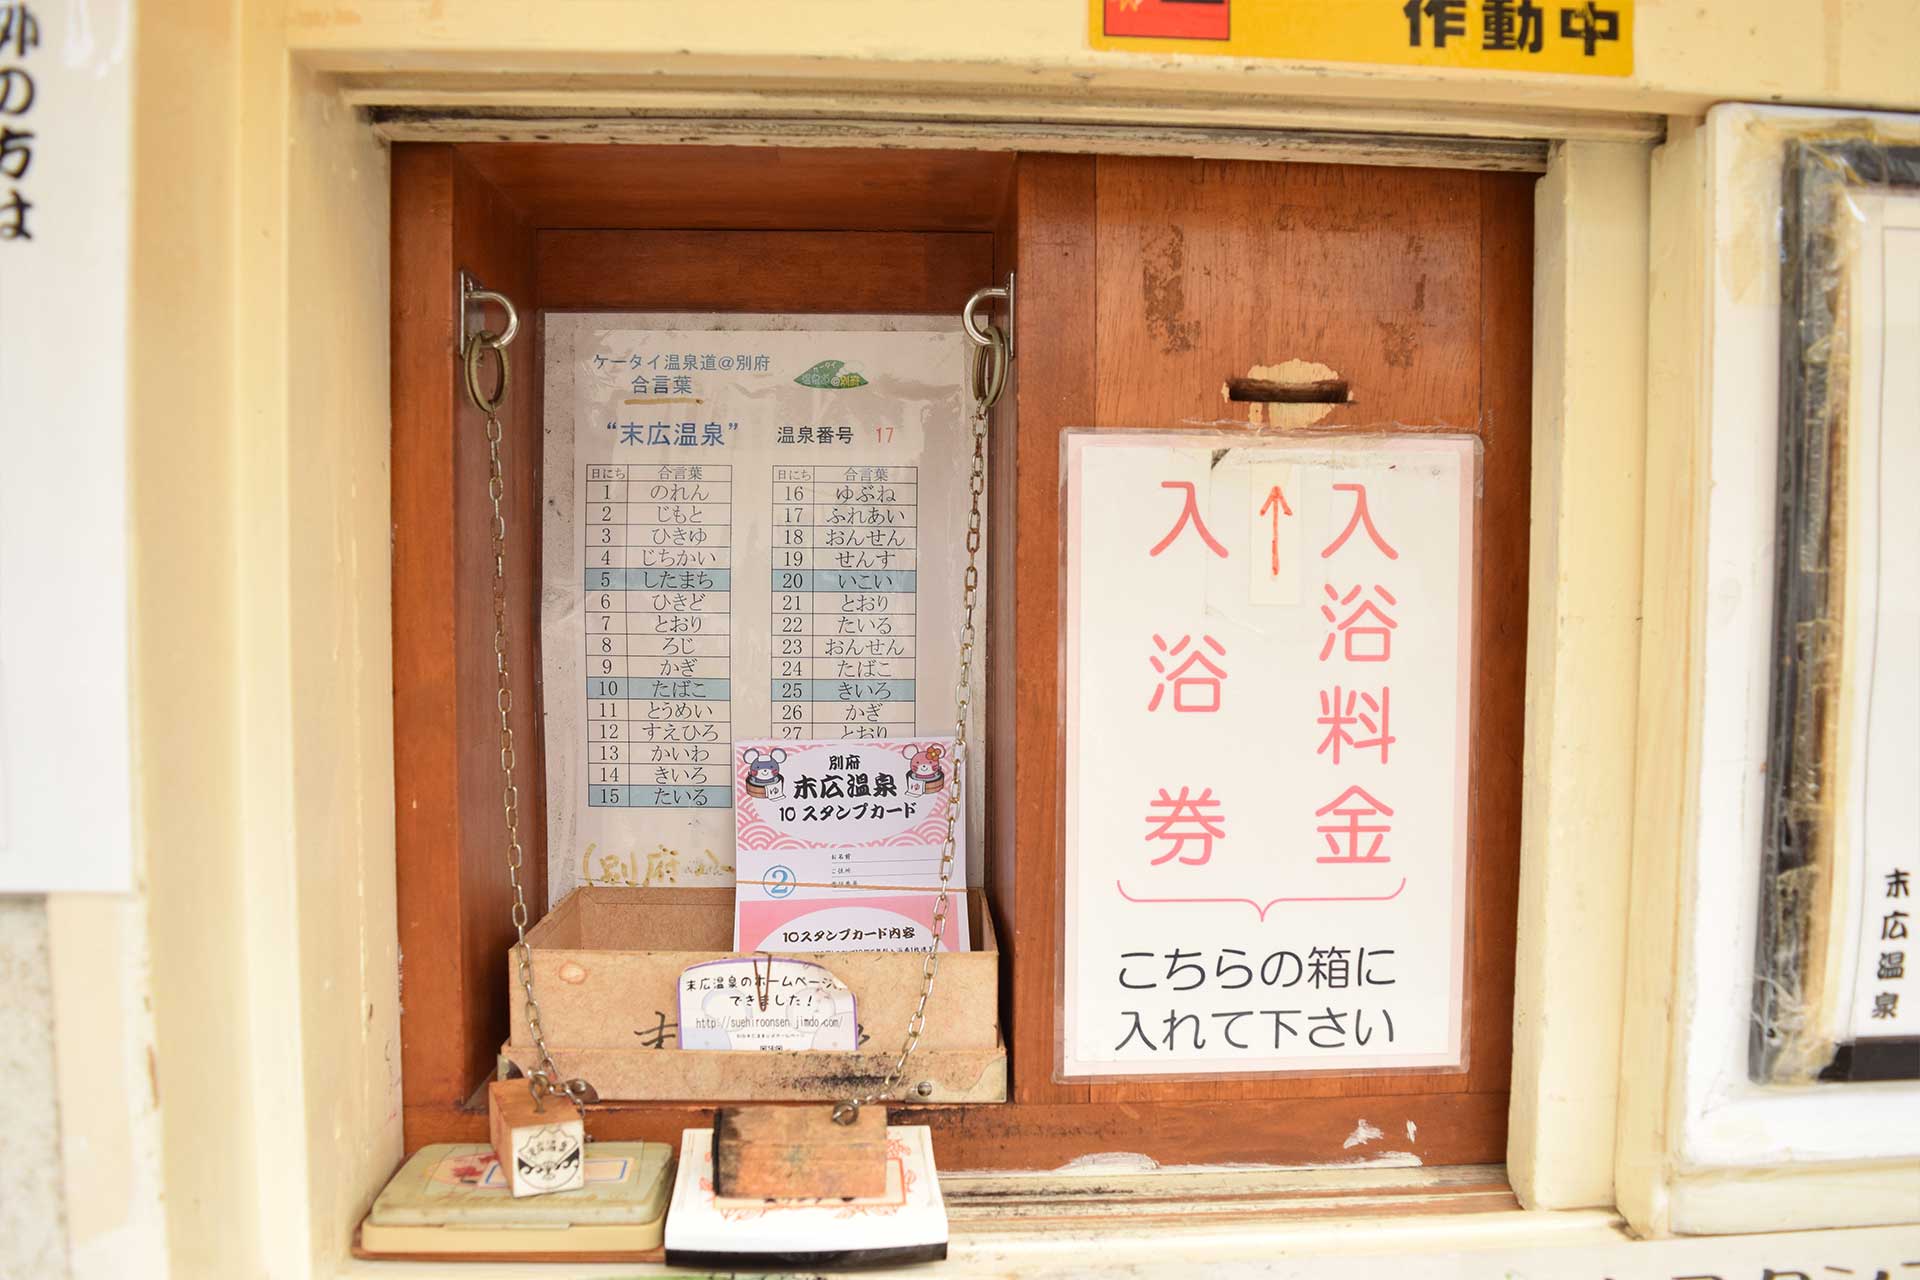 外の方は
作動中
ケータイ温泉道@別府
合言葉
“末広温泉” 温泉番号 17
日にち 合言葉
1 のれん
2 じもと
3 ひきゆ
4 じちかい
5 したまち
6 ひきど
7 とおり
8 ろじ
9 かぎ
10 たばこ
11 とうめい
12 すえひろ
13 かいわ
14 きいろ
15 たいる
日にち 合言葉
16 ゆぶね
17 ふれあい
18 おんせん
19 せんす
20 いこい
21 とおり
22 たいる
23 おんせん
24 たばこ
25 きいろ
26 かぎ
27 とおり
(別府
別府
末広温泉
10 スタンプカード
お名前
ご住所
②
10スタンプカード内容
末広温泉のホームページ
できました!
http://suehiroonsen.jimdo.com/
入浴料金
入浴券
こちらの箱に
入れて下さい
末広温泉